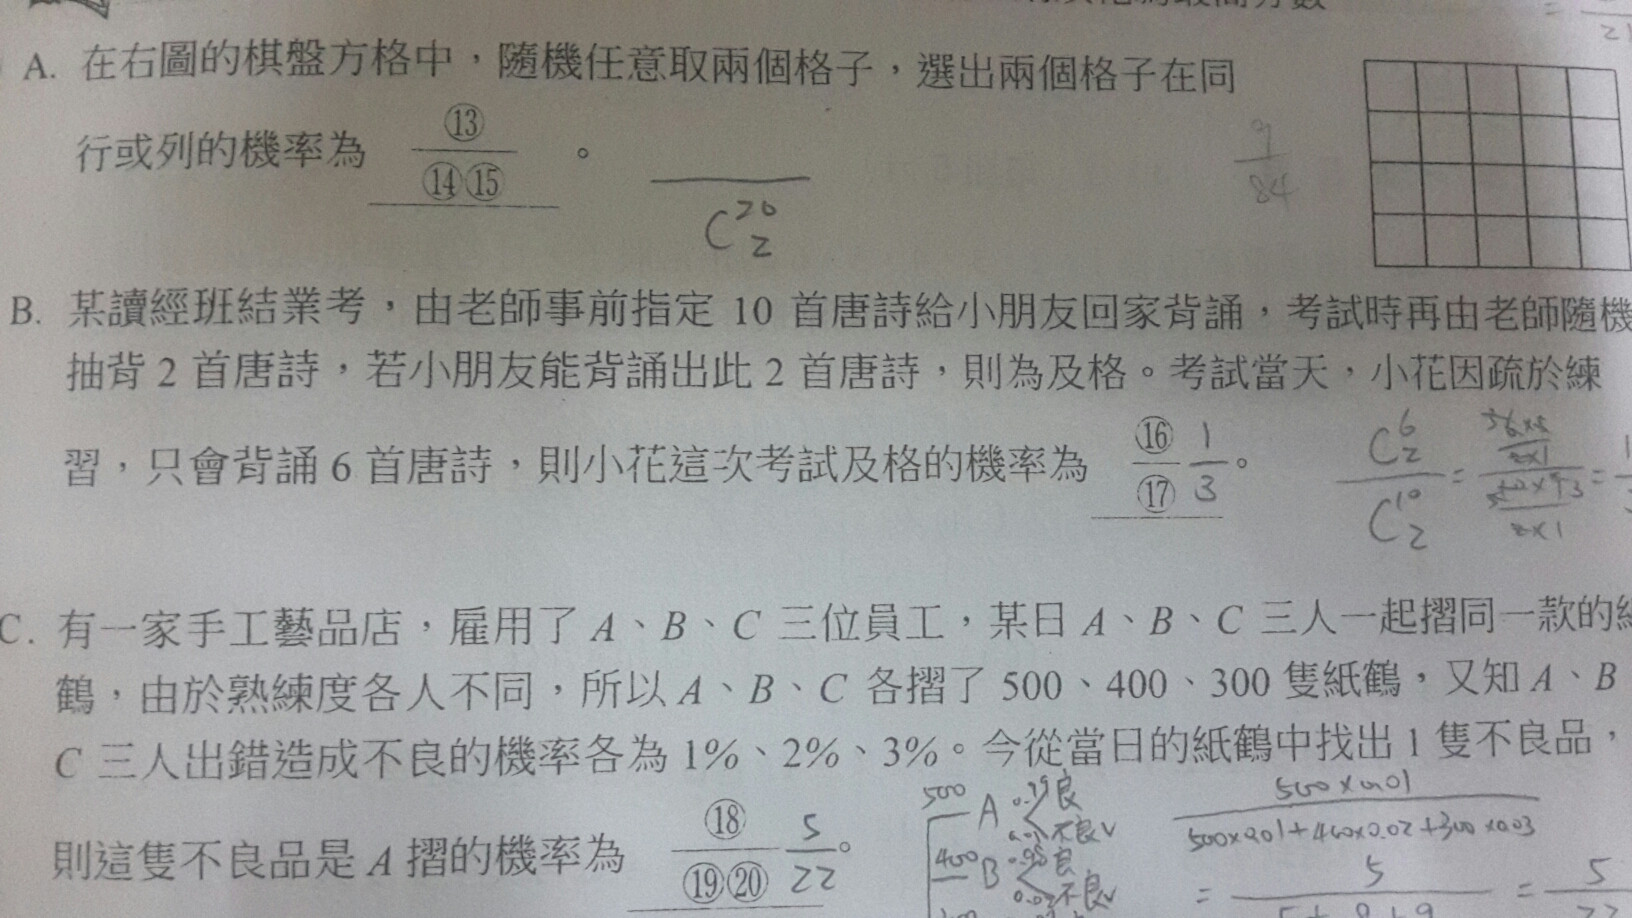 A. 在右圖的棋盤方格中，隨機任意取兩個格子，選出兩個格子在同
行或列的機率為 ⑬/⑭⑮ 。
C 20 2
9/84
B. 某讀經班結業考，由老師事前指定 10 首唐詩給小朋友回家背誦，考試時再由老師隨機
抽背 2 首唐詩，若小朋友能背誦出此 2 首唐詩，則為及格。考試當天，小花因疏於練
習，只會背誦 6 首唐詩，則小花這次考試及格的機率為 ⑯/⑰ 1/3 。
C 6 2 / C 10 2 =
C. 有一家手工藝品店，雇用了 A、B、C 三位員工，某日 A、B、C 三人一起摺同一款的
鶴，由於熟練度各人不同，所以 A、B、C 各摺了 500、400、300 隻紙鶴，又知 A、B
C 三人出錯造成不良的機率各為 1%、2%、3%。今從當日的紙鶴中找出 1 隻不良品，
則這隻不良品是 A 摺的機率為 ⑱/⑲⑳ 5/22 。
500 A 0.99良
不良✓
400 B 0.98良
0.02不良✓
500×0.01
500×0.01+400×0.02+300×0.03
= 5 / 5+8+9 = 5/22